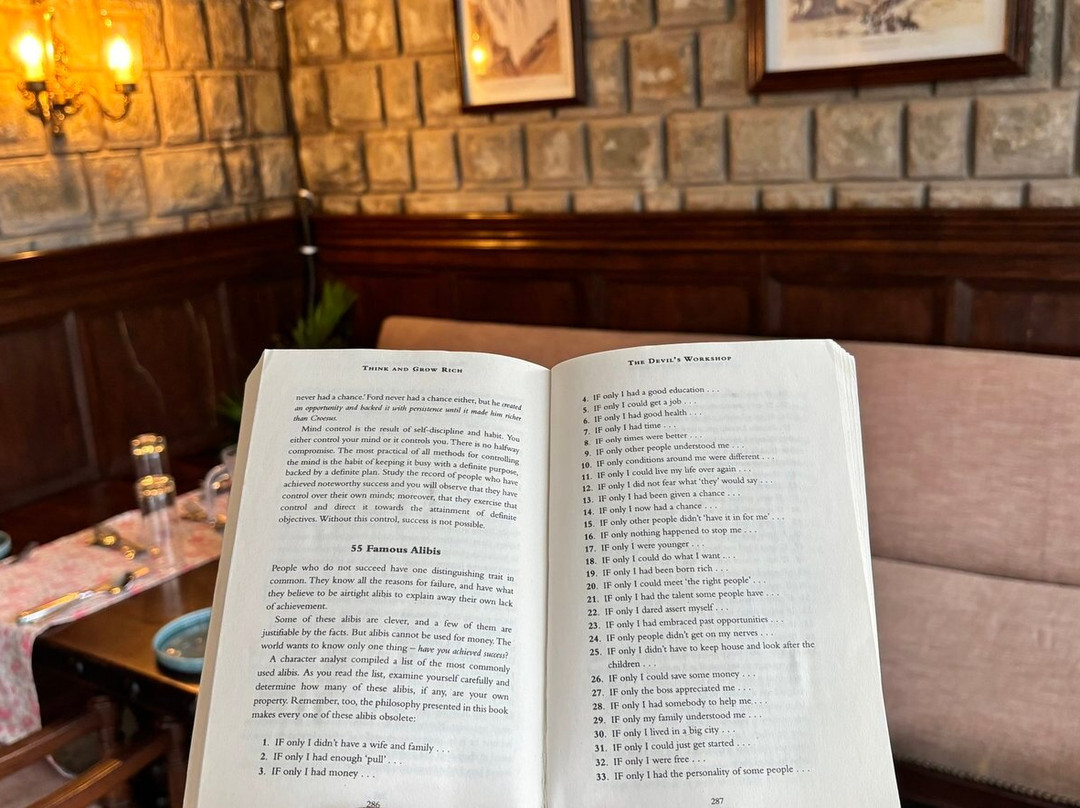 THINK AND GROW RICH
never had a chance.' Ford never had a chance either, but he created
an opportunity and backed it with persistence until it made him richer
than Croesus.
Mind control is the result of self-discipline and habit. You
either control your mind or it controls you. There is no halfway
compromise. The most practical of all methods for controlling
the mind is the habit of keeping it busy with a definite purpose,
backed by a definite plan. Study the record of people who have
achieved noteworthy success and you will observe that they have
control over their own minds; moreover, that they exercise that
control and direct it towards the attainment of definite
objectives. Without this control, success is not possible.
55 Famous Alibis
People who do not succeed have one distinguishing trait in
common. They know all the reasons for failure, and have what
they believe to be airtight alibis to explain away their own lack
of achievement.
Some of these alibis are clever, and a few of them are
justifiable by the facts. But alibis cannot be used for money. The
world wants to know only one thing – have you achieved success?
A character analyst compiled a list of the most commonly
used alibis. As you read the list, examine yourself carefully and
determine how many of these alibis, if any, are your own
property. Remember, too, the philosophy presented in this book
makes every one of these alibis obsolete:
1. IF only I didn't have a wife and family . . .
2. IF only I had enough 'pull' . . .
3. IF only I had money . . .
286
THE DEVIL'S WORKSHOP
4. IF only I had a good education . . .
5. IF only I could get a job . . .
6. IF only I had good health . . .
7. IF only I had time . . .
8. IF only times were better . . .
9. IF only other people understood me . . .
10. IF only conditions around me were different . . .
11. IF only I could live my life over again . . .
12. IF only I did not fear what 'they' would say . . .
13. IF only I had been given a chance . . .
14. IF only I now had a chance . . .
15. IF only other people didn't 'have it in for me' . . .
16. IF only nothing happened to stop me . . .
17. IF only I were younger . . .
18. IF only I could do what I want . . .
19. IF only I had been born rich . . .
20. IF only I could meet 'the right people' . . .
21. IF only I had the talent some people have . . .
22. IF only I dared assert myself . . .
23. IF only I had embraced past opportunities . . .
24. IF only people didn't get on my nerves . . .
25. IF only I didn't have to keep house and look after the
children . . .
26. IF only I could save some money . . .
27. IF only the boss appreciated me . . .
28. IF only I had somebody to help me . . .
29. IF only my family understood me . . .
30. IF only I lived in a big city . . .
31. IF only I could just get started . . .
32. IF only I were free . . .
33. IF only I had the personality of some people . . .
287